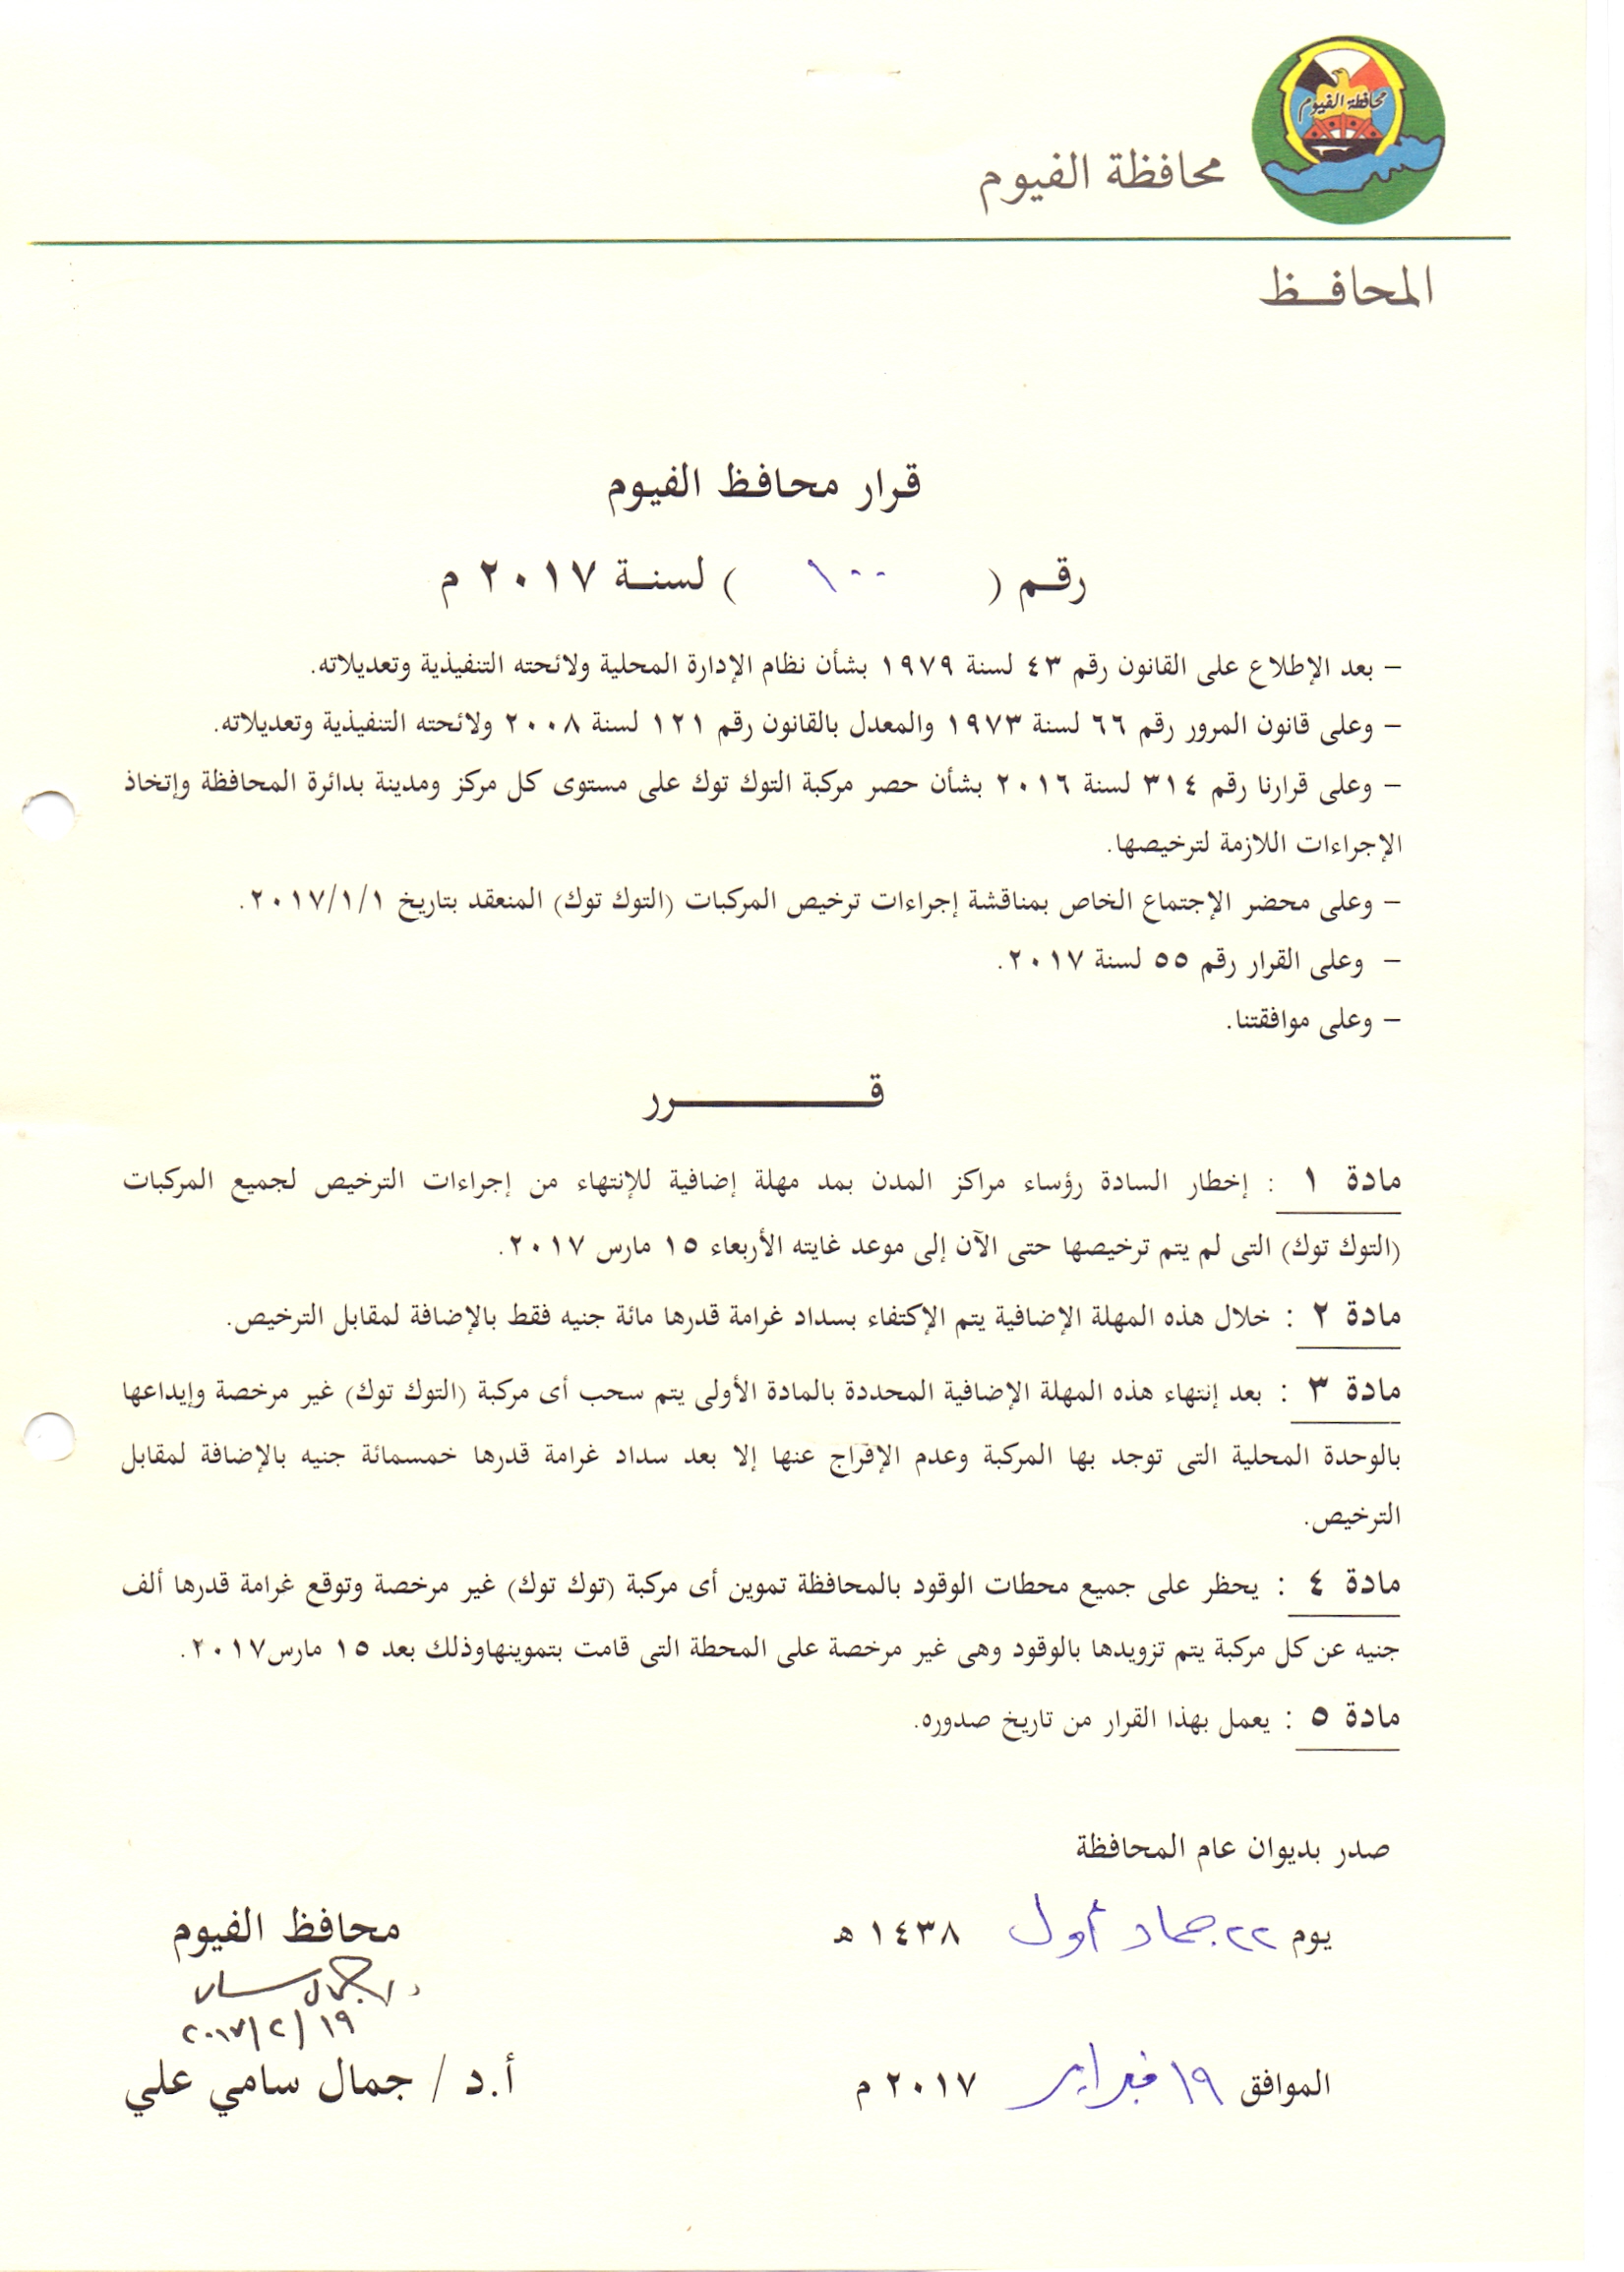 محافظة الفيوم
محافظة الفيوم
المحافــظ
قرار محافظ الفيوم
رقـم ( ١٠٠ ) لسنـة ٢٠١٧ م
– بعد الإطلاع على القانون رقم ٤٣ لسنة ١٩٧٩ بشأن نظام الإدارة المحلية ولائحته التنفيذية وتعديلاته.
– وعلى قانون المرور رقم ٦٦ لسنة ١٩٧٣ والمعدل بالقانون رقم ١٢١ لسنة ٢٠٠٨ ولائحته التنفيذية وتعديلاته.
– وعلى قرارنا رقم ٣١٤ لسنة ٢٠١٦ بشأن حصر مركبة التوك توك على مستوى كل مركز ومدينة بدائرة المحافظة وإتخاذ
الإجراءات اللازمة لترخيصها.
– وعلى محضر الإجتماع الخاص بمناقشة إجراءات ترخيص المركبات (التوك توك) المنعقد بتاريخ ٢٠١٧/١/١.
– وعلى القرار رقم ٥٥ لسنة ٢٠١٧.
– وعلى موافقتنا.
قــــــــرر
مادة ١ : إخطار السادة رؤساء مراكز المدن بمد مهلة إضافية للإنتهاء من إجراءات الترخيص لجميع المركبات
(التوك توك) التى لم يتم ترخيصها حتى الآن إلى موعد غايته الأربعاء ١٥ مارس ٢٠١٧.
مادة ٢ : خلال هذه المهلة الإضافية يتم الإكتفاء بسداد غرامة قدرها مائة جنيه فقط بالإضافة لمقابل الترخيص.
مادة ٣ : بعد إنتهاء هذه المهلة الإضافية المحددة بالمادة الأولى يتم سحب أى مركبة (التوك توك) غير مرخصة وإيداعها
بالوحدة المحلية التى توجد بها المركبة وعدم الإفراج عنها إلا بعد سداد غرامة قدرها خمسمائة جنيه بالإضافة لمقابل
الترخيص.
مادة ٤ : يحظر على جميع محطات الوقود بالمحافظة تموين أى مركبة (توك توك) غير مرخصة وتوقع غرامة قدرها ألف
جنيه عن كل مركبة يتم تزويدها بالوقود وهى غير مرخصة على المحطة التى قامت بتموينهاوذلك بعد ١٥ مارس٢٠١٧.
مادة ٥ : يعمل بهذا القرار من تاريخ صدوره.
صدر بديوان عام المحافظة
يوم ٢٢ جماد أول ١٤٣٨ هـ
الموافق ١٩ فبراير ٢٠١٧ م
محافظ الفيوم
٢٠١٧/٢/١٩
أ.د / جمال سامي علي